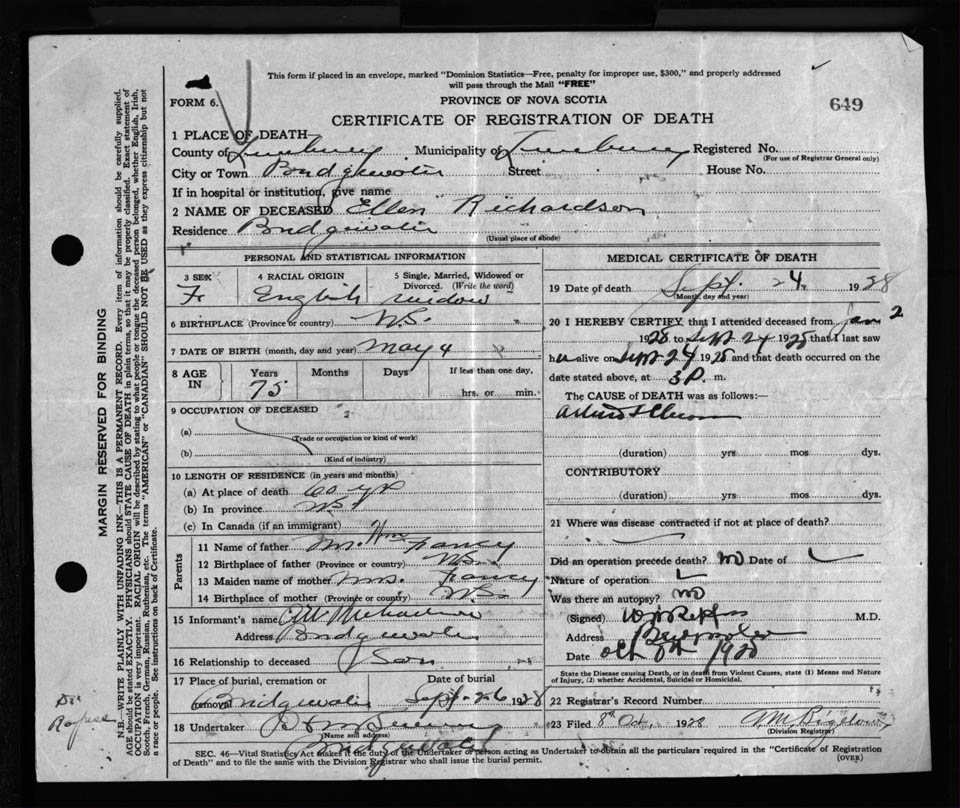 This form if placed in an envelope, marked "Dominion Statistics—Free, penalty for improper use, $300," and properly addressed
will pass through the Mail "FREE"
FORM 6.
PROVINCE OF NOVA SCOTIA
649
CERTIFICATE OF REGISTRATION OF DEATH
1 PLACE OF DEATH
County of Lunenburg Municipality of Lunenburg Registered No.
(For use of Registrar General only)
City or Town Bridgewater Street House No.
If in hospital or institution, give name
2 NAME OF DECEASED Ellen Richardson
Residence Bridgewater
(Usual place of abode)
PERSONAL AND STATISTICAL INFORMATION
3 SEX 4 RACIAL ORIGIN 5 Single, Married, Widowed or Divorced. (Write the word)
F. English widow
6 BIRTHPLACE (Province or country) N.S.
7 DATE OF BIRTH (month, day and year) May 4
8 AGE IN Years Months Days If less than one day,
75 hrs. or min.
9 OCCUPATION OF DECEASED
(a)
(Trade or occupation or kind of work)
(b)
(Kind of industry)
10 LENGTH OF RESIDENCE (in years and months)
(a) At place of death yrs
(b) In province N.S.
(c) In Canada (if an immigrant)
Parents
11 Name of father Mr. Wm Fancy
12 Birthplace of father (Province or country) N.S.
13 Maiden name of mother Mrs. Fancy
14 Birthplace of mother (Province or country) N.S.
15 Informant's name
Address Bridgewater
16 Relationship to deceased Son
17 Place of burial, cremation or removal Date of burial
Bridgewater Sept. 26 1928
18 Undertaker
(Name and address)
Bridgewater
MEDICAL CERTIFICATE OF DEATH
19 Date of death Sept. 24, 1928
(Month, day and year)
20 I HEREBY CERTIFY that I attended deceased from Jan 2
1928 to Sept 24 1928 that I last saw
her alive on Sept 24 1928 and that death occurred on the
date stated above, at 3 P. m.
The CAUSE of DEATH was as follows:—
(duration) yrs mos dys.
CONTRIBUTORY
(duration) yrs mos dys.
21 Where was disease contracted if not at place of death?
Did an operation precede death? no Date of
Nature of operation
Was there an autopsy? no
(Signed) M.D.
Address
Date Oct 8th 1928
State the Disease causing Death, or in death from Violent Causes, state (1) Means and Nature of Injury, (2) whether Accidental, Suicidal or Homicidal.
22 Registrar's Record Number
23 Filed 8th Oct. 1928
(Division Registrar)
SEC. 46—Vital Statistics Act makes it the duty of the Undertaker or person acting as Undertaker to obtain all the particulars required in the "Certificate of Registration
of Death" and to file the same with the Division Registrar who shall issue the burial permit.
(OVER)
MARGIN RESERVED FOR BINDING
N.B.—WRITE PLAINLY WITH UNFADING INK—THIS IS A PERMANENT RECORD. Every item of information should be carefully supplied.
AGE should be stated EXACTLY. PHYSICIANS should STATE CAUSE OF DEATH in plain terms, so that it may be properly classified. Exact statement of
OCCUPATION is very important. RACIAL ORIGIN will be described by stating to what people or tongue the deceased person belonged, whether English, Irish,
Scotch, French, German, Russian, Ruthenian, etc. The terms "AMERICAN" or "CANADIAN" SHOULD NOT BE USED as they express citizenship but not
a race or people. See instructions on back of Certificate.
Dr.